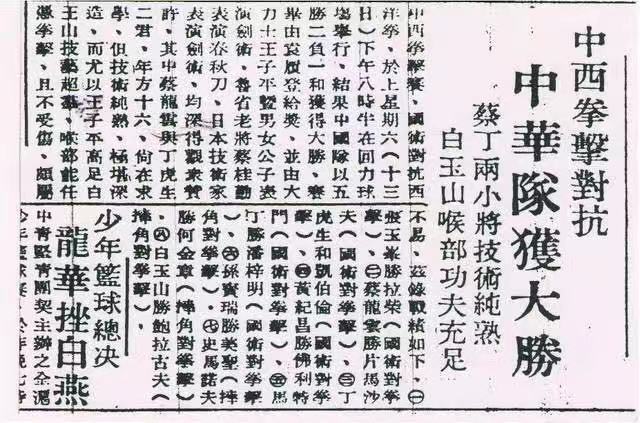 中西拳擊對抗
中華隊獲大勝
蔡丁兩小將技術純熟
白玉山喉部功夫充足
中西拳擊賽、國術對抗西
洋拳、於上星期六(十三
日)下午八時半在回力球
塲舉行、結果中國隊以五
勝二負一和獲得大勝、賽
畢由袁履登給奬、並由大
力士王子平暨男女公子表
演劍術、魯省老將蔡桂勤
表演春秋刀、日本技術家
表演劍術、均深得觀衆贊
許、其中蔡龍雲與丁虎生
二君、年方十六、尙在求
學、但技術純熟、極堪深
造、而尤以王子平高足白
玉山技藝超羣、喉部能任
憑拳擊、且不受傷、頗屬
不易、茲錄戰績如下、㊀
張玉勝拉柴(國術對拳
擊)、㊁蔡龍雲勝片馬沙
夫(國術對拳擊)、㊂丁
虎生和劉伯倫(國術對拳
擊)、㊃黃紀昌勝佛利特
門(國術對拳擊)、㊄馬
丁勝潘梓明(國術對拳擊
)、㊅孫寶瑞勝美聖(摔
角對拳擊)、㊆史馬諾夫
勝何金章(摔角對拳擊)
、㊇白玉山勝鮑拉古夫(
摔角對拳擊)、
少年籃球總决
龍華挫白燕
中青堅青團契主辦之全滬
少年籃球賽、於昨晚七時